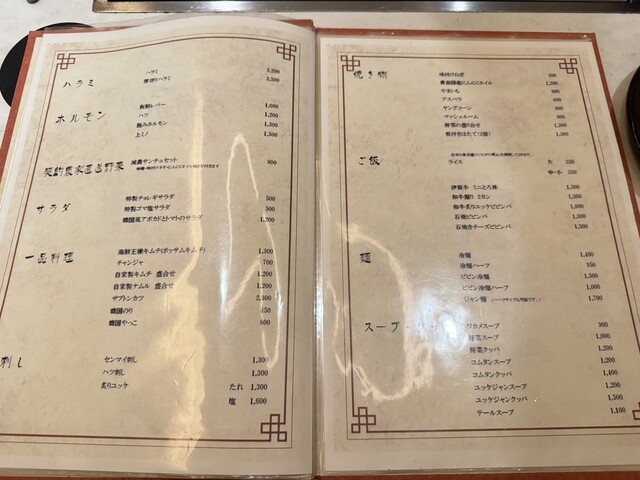 ハラミ
ハラミ 2,200
厚切りハラミ 3,300
ホルモン
新鮮レバー 1,600
ハツ 1,200
極みホルモン 1,300
上ミノ 1,500
契約農家直送野菜
減農サンチュセット 800
サラダ
特製チョレギサラダ 500
特製ゴマ塩サラダ 500
韓国風アボカドとトマトのサラダ 1,200
一品料理
海鮮王様キムチ(ポッサムキムチ) 1,300
チャンジャ 700
自家製キムチ 盛合せ 1,200
自家製ナムル 盛合せ 1,200
サブトンカツ 2,300
韓国のり 450
韓国やっこ 800
刺し
センマイ刺し 1,300
ハツ刺し 1,300
炙りユッケ たれ 1,300
塩 1,600
焼き物
味付けねぎ 300
青森国産にんにくホイル 1,200
やまいも 800
アスパラ 800
ヤングコーン 800
マッシュルーム 800
野菜の盛り合せ 1,300
殻付きほたて(2個) 1,300
ご飯
ライス 大 350
中・小
伊賀牛 ミニとろ丼 1,300
和牛握り 2カン
和牛炙りユッケビビンバ
石焼ビビンバ 1,300
石焼きチーズビビンバ
麺
冷麺 1,400
冷麺ハーフ 850
ビビン冷麺 1,500
ビビン冷麺ハーフ 1,000
ジャン麺 (ハーフサイズも可能です。) 1,700
スープ
ワカメスープ
野菜スープ 1,000
野菜クッパ 1,200
コムタンスープ 1,200
コムタンクッパ 1,400
ユッケジャンスープ 1,200
ユッケジャンクッパ 1,500
テールスープ 1,100